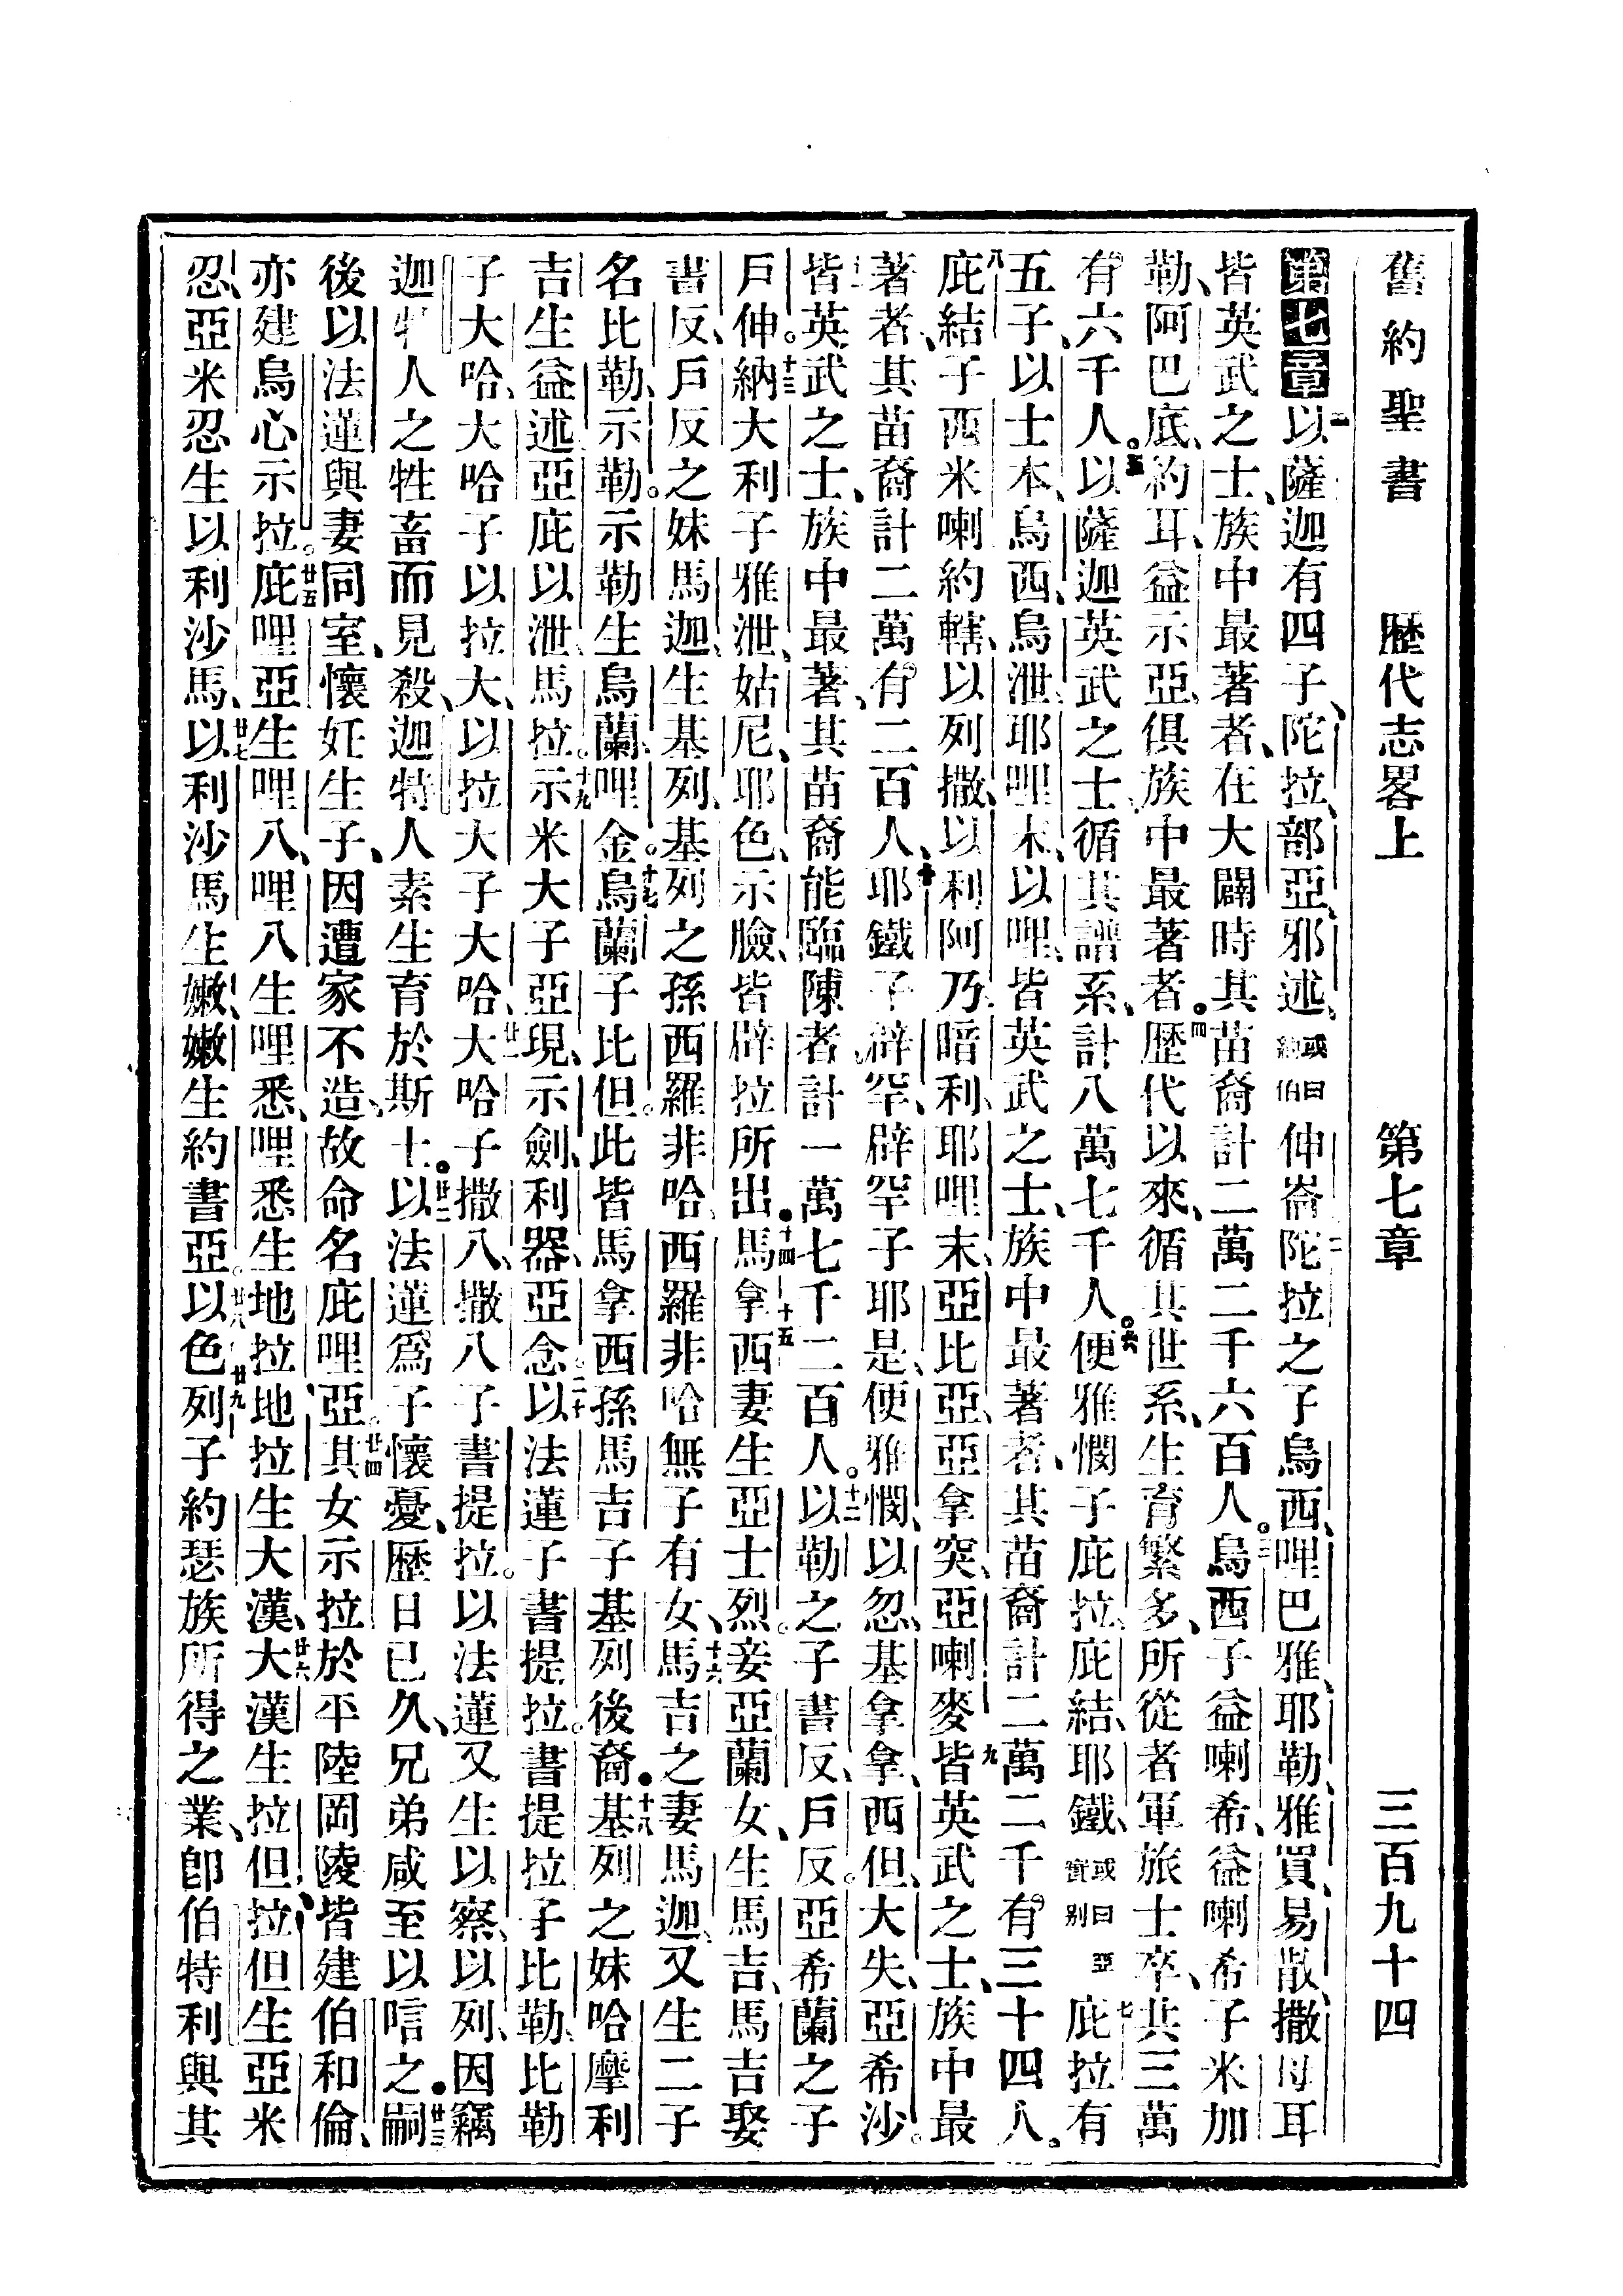 舊約聖書 歷代志畧上 第七章 三百九十四
第七章一以薩迦有四子、陀拉、部亞、邪述、或曰約伯伸崙二陀拉之子烏西、哩巴雅、耶勒、雅買、易散、撒母耳
皆英武之士、族中最著者、在大闢時其苗裔計二萬二千六百人。三烏西子益喇希、益喇希子米加
勒、阿巴底、約耳、益示亞、俱族中最著者。四歷代以來、循其世系、生育繁多、所從者軍旅士卒、共三萬
有六千人。五以薩迦英武之士循其譜系、計八萬七千人。六便雅憫子庇拉、庇結、耶鐵、或曰亞實別七庇拉有
五子、以士本、烏西、烏泄、耶哩木、以哩、皆英武之士、族中最著者、其苗裔計二萬二千有三十四人。
八庇結子西米喇、約轄、以列撒、以利阿乃、暗利、耶哩末、亞比亞、亞拿突、亞喇麥、九皆英武之士、族中最
著者、其苗裔計二萬有二百人、十耶鐵子辟罕、辟罕子耶是、便雅憫、以忽、基拿拿、西但、大失、亞希沙。
皆英武之士、族中最著、其苗裔能臨陳者計一萬七千二百人。十二以勒之子書反、戶反。亞希蘭之子
戶伸。十三納大利子雅泄、姑尼、耶色、示臉、皆辟拉所出。十四馬拿十五西妻生亞士烈。妾亞蘭女、生馬吉、馬吉娶
書反、戶反之妹馬迦、生基列、基列之孫西羅非哈、西羅非哈無子有女、十六馬吉之妻馬迦、又生二子
名比勒、示勒。示勒生烏蘭、哩金。十七烏蘭子比但。此皆馬拿西孫馬吉子基列後裔。十八基列之妹哈摩利
吉生益述、亞庇以泄、馬拉。十九示米大子亞現、示劍、利器、亞念。二十以法蓮子書提拉。書提拉子比勒、比勒
子大哈、大哈子以拉大、以拉大子大哈、廿一大哈子撒八、撒八子書提拉。以法蓮又生以察、以列、因竊
迦特人之牲畜而見殺、迦特人素生育於斯土。廿二以法蓮爲子懷憂、歷日已久、兄弟咸至以唁之。廿三嗣
後以法蓮與妻同室、懷妊生子、因遭家不造、故命名庇哩亞。廿四其女示拉於平陸岡陵皆建伯和倫、
亦建烏心示拉。廿五庇哩亞生哩八、哩八生哩悉、哩悉生地拉、地拉生大漢、廿六大漢生拉但、拉但生亞米
忍、亞米忍生以利沙馬、廿七以利沙馬生嫩、嫩生約書亞。廿八以色廿九列子約瑟族所得之業、卽伯特利與其